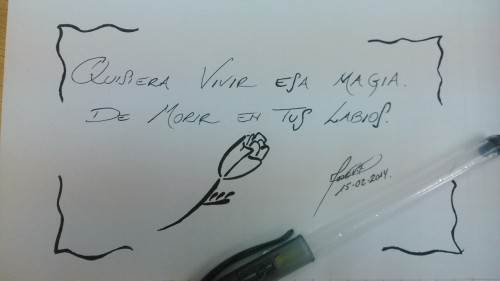 QUISIERA VIVIR ESA MAGIA.
DE MORIR EN TUS LABIOS.
15-02-2014.